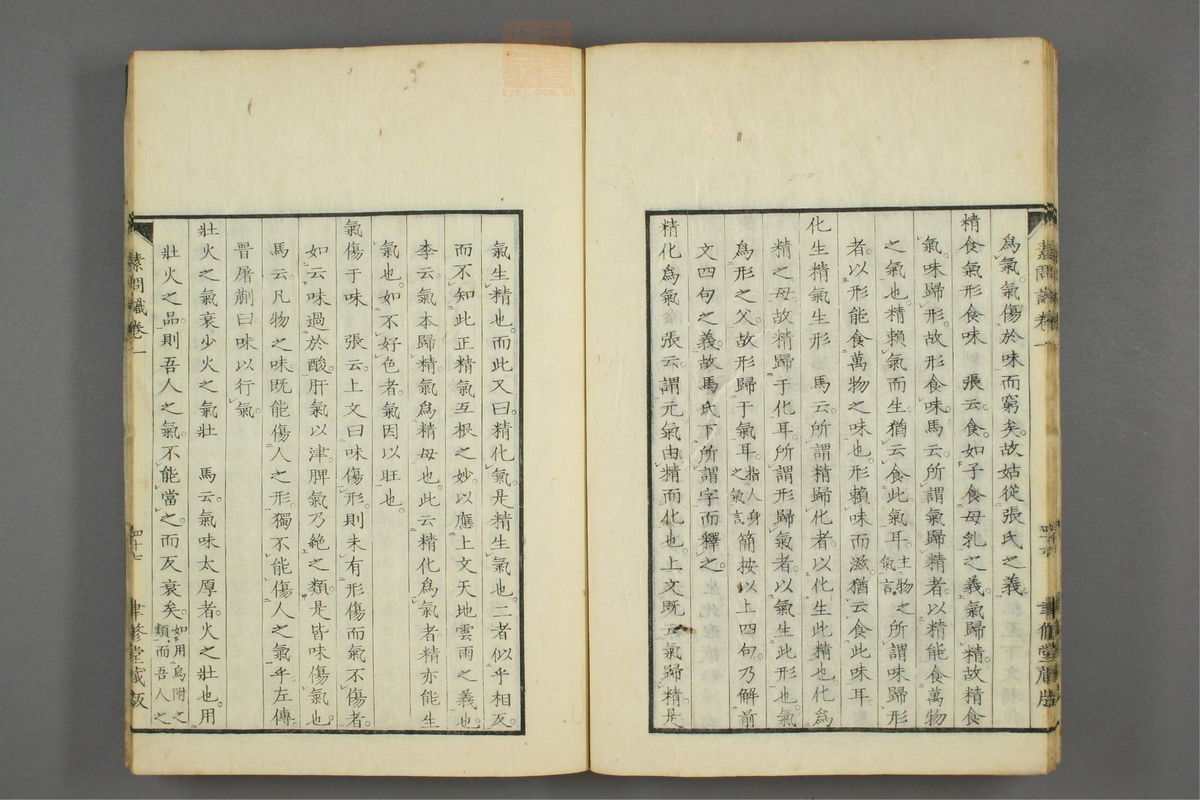 素問識卷一
四十六
聿修堂藏版
爲氣。氣傷於味而窮矣。故姑從張氏之義。
精食氣形食味　張云。食。如子食母乳之義。氣歸精。故精食
氣。味歸形。故形食味。馬云。所謂氣歸精者。以精能食萬物
之氣也。精賴氣而生。猶云食此氣耳。主物之氣言所謂味歸形
者。以形能食萬物之味也。形賴味而滋。猶云食此味耳。
化生精氣生形　馬云。所謂精歸化者。以化生此精也。化爲
精之母。故精歸于化耳。所謂形歸氣者。以氣生此形也。氣
爲形之父。故形歸于氣耳。指人身之氣言簡按以上四句。乃解前
文四句之義。故馬氏下所謂字而釋之。
精化爲氣　張云。謂元氣由精而化也。上文既云氣歸精。是
氣生精也。而此又曰精化氣。是精生氣也。二者似乎相反。
而不知此正精氣互根之妙。以應上文天地雲雨之義也。
李云。氣本歸精。氣爲精母也。此云精化爲氣者。精亦能生
氣也。如不好色者。氣因以旺也。
氣傷于味　張云。上文曰味傷形。則未有形傷而氣不傷者。
如云味過於酸。肝氣以津。脾氣乃絶之類。是皆味傷氣也。
馬云。凡物之味。既能傷人之形。獨不能傷人之氣乎。左傳。
晉屠蒯曰。味以行氣。
壯火之氣衰少火之氣壯　馬云。氣味太厚者。火之壯也。用
壯火之品。則吾人之氣。不能當之。而反衰矣。如用烏附之類。而吾人之
素問識卷一
四十七
聿修堂藏版